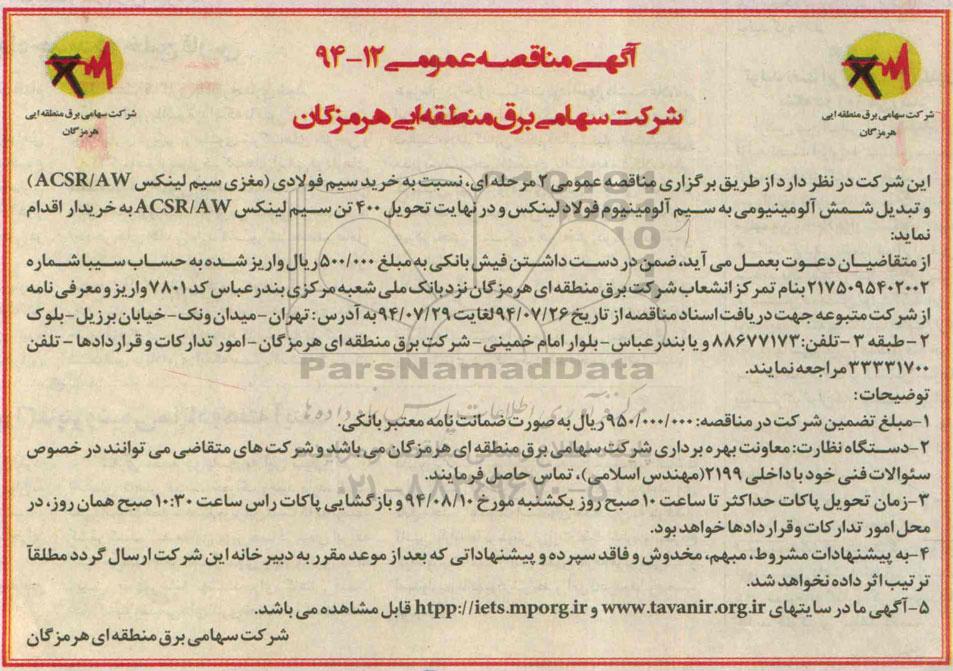 آگهی مناقصه عمومی ۱۲-۹۴
شرکت سهامی برق منطقه‌ایی هرمزگان
شرکت سهامی برق منطقه ایی
هرمزگان
شرکت سهامی برق منطقه ایی
هرمزگان
این شرکت در نظر دارد از طریق برگزاری مناقصه عمومی ۲ مرحله ای، نسبت به خرید سیم فولادی (مغزی سیم لینکس ACSR/AW)
و تبدیل شمش آلومینیومی به سیم آلومینیوم فولاد لینکس و در نهایت تحویل ۴۰۰ تن سیم لینکس ACSR/AW به خریدار اقدام
نماید:
از متقاضیان دعوت بعمل می آید، ضمن در دست داشتن فیش بانکی به مبلغ ۵۰۰/۰۰۰ ریال واریز شده به حساب سیبا شماره
۲۱۷۵۰۹۵۴۰۲۰۰۲ بنام تمرکز انشعاب شرکت برق منطقه ای هرمزگان نزد بانک ملی شعبه مرکزی بندرعباس کد ۷۸۰۱ واریز و معرفی نامه
از شرکت متبوعه جهت دریافت اسناد مناقصه از تاریخ ۹۴/۰۷/۲۶ لغایت ۹۴/۰۷/۲۹ به آدرس: تهران-میدان ونک-خیابان برزیل-بلوک
۲-طبقه ۳-تلفن: ۸۸۶۷۷۱۷۳ و یا بندرعباس-بلوار امام خمینی-شرکت برق منطقه ای هرمزگان-امور تدارکات و قراردادها-تلفن
۳۳۳۳۱۷۰۰ مراجعه نمایند.
ParsNamadData
توضیحات:
۱-مبلغ تضمین شرکت در مناقصه: ۹۵۰/۰۰۰/۰۰۰ ریال به صورت ضمانت نامه معتبر بانکی.
۲-دستگاه نظارت: معاونت بهره برداری شرکت سهامی برق منطقه ای هرمزگان می باشد و شرکت های متقاضی می توانند در خصوص
سئوالات فنی خود با داخلی ۲۱۹۹ (مهندس اسلامی)، تماس حاصل فرمایند.
۳-زمان تحویل پاکات حداکثر تا ساعت ۱۰ صبح روز یکشنبه مورخ ۹۴/۰۸/۱۰ و بازگشایی پاکات راس ساعت ۱۰:۳۰ صبح همان روز، در
محل امور تدارکات و قراردادها خواهد بود.
۴-به پیشنهادات مشروط، مبهم، مخدوش و فاقد سپرده و پیشنهاداتی که بعد از موعد مقرر به دبیرخانه این شرکت ارسال گردد مطلقاً
ترتیب اثر داده نخواهد شد.
۵-آگهی ما در سایتهای www.tavanir.org.ir و htpp://iets.mporg.ir قابل مشاهده می باشد.
شرکت سهامی برق منطقه ای هرمزگان